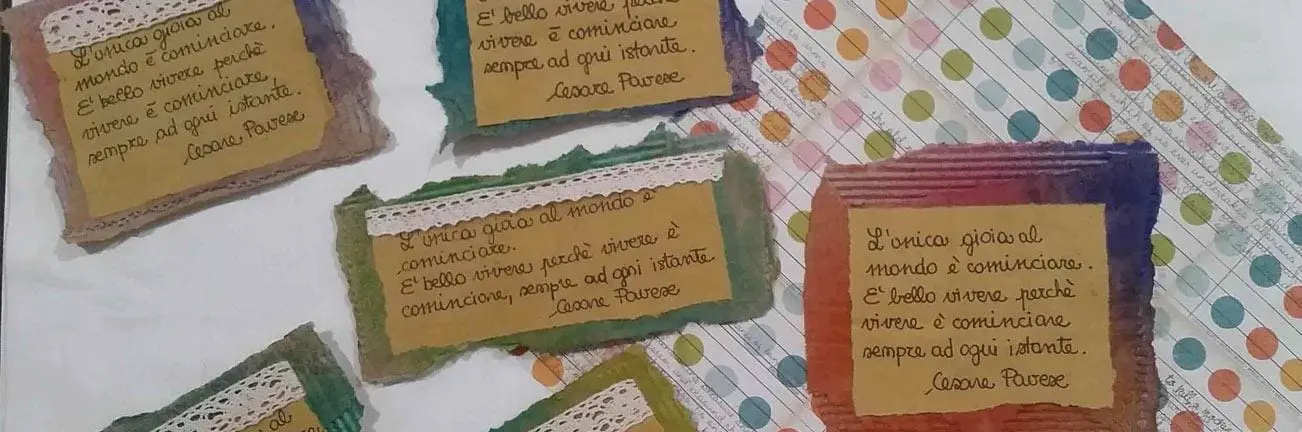 L'unica gioia al
mondo è cominciare.
E' bello vivere perchè
vivere è cominciare,
sempre ad ogni istante.
Cesare Pavese
E' bello vivere perchè
vivere è cominciare
sempre ad ogni istante.
Cesare Pavese
L'unica gioia al mondo è
cominciare.
E' bello vivere perchè vivere è
cominciare, sempre ad ogni istante.
Cesare Pavese
L'unica gioia al
mondo è cominciare.
E' bello vivere perchè
vivere è cominciare
sempre ad ogni istante.
Cesare Pavese